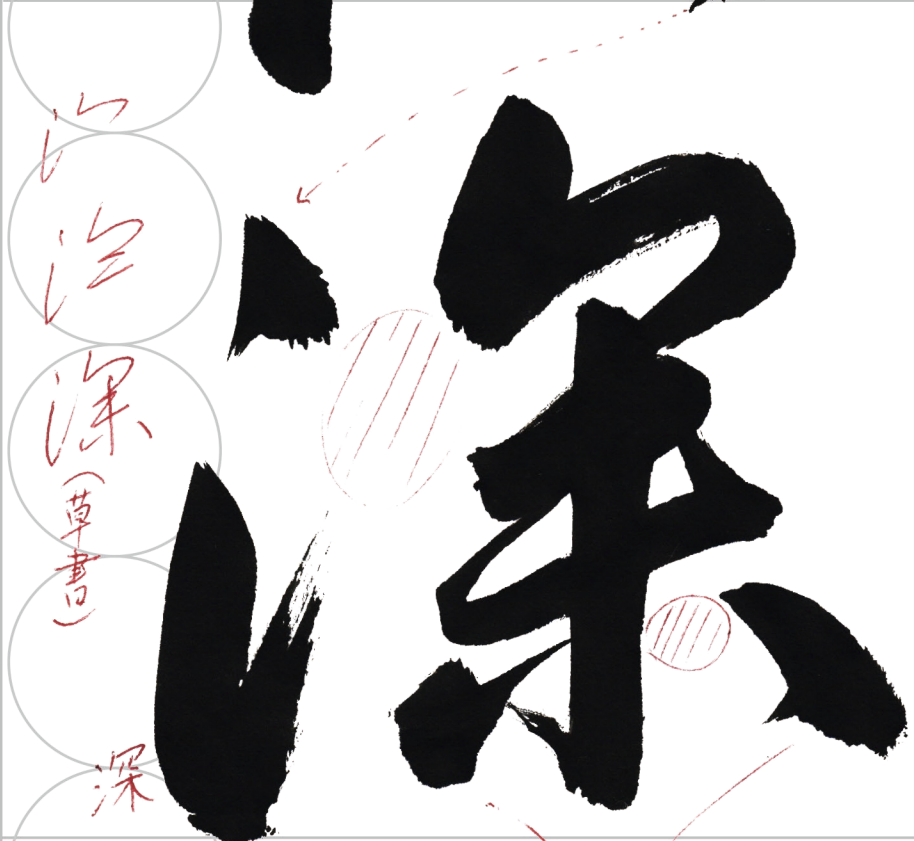 深
深
(草書)
深